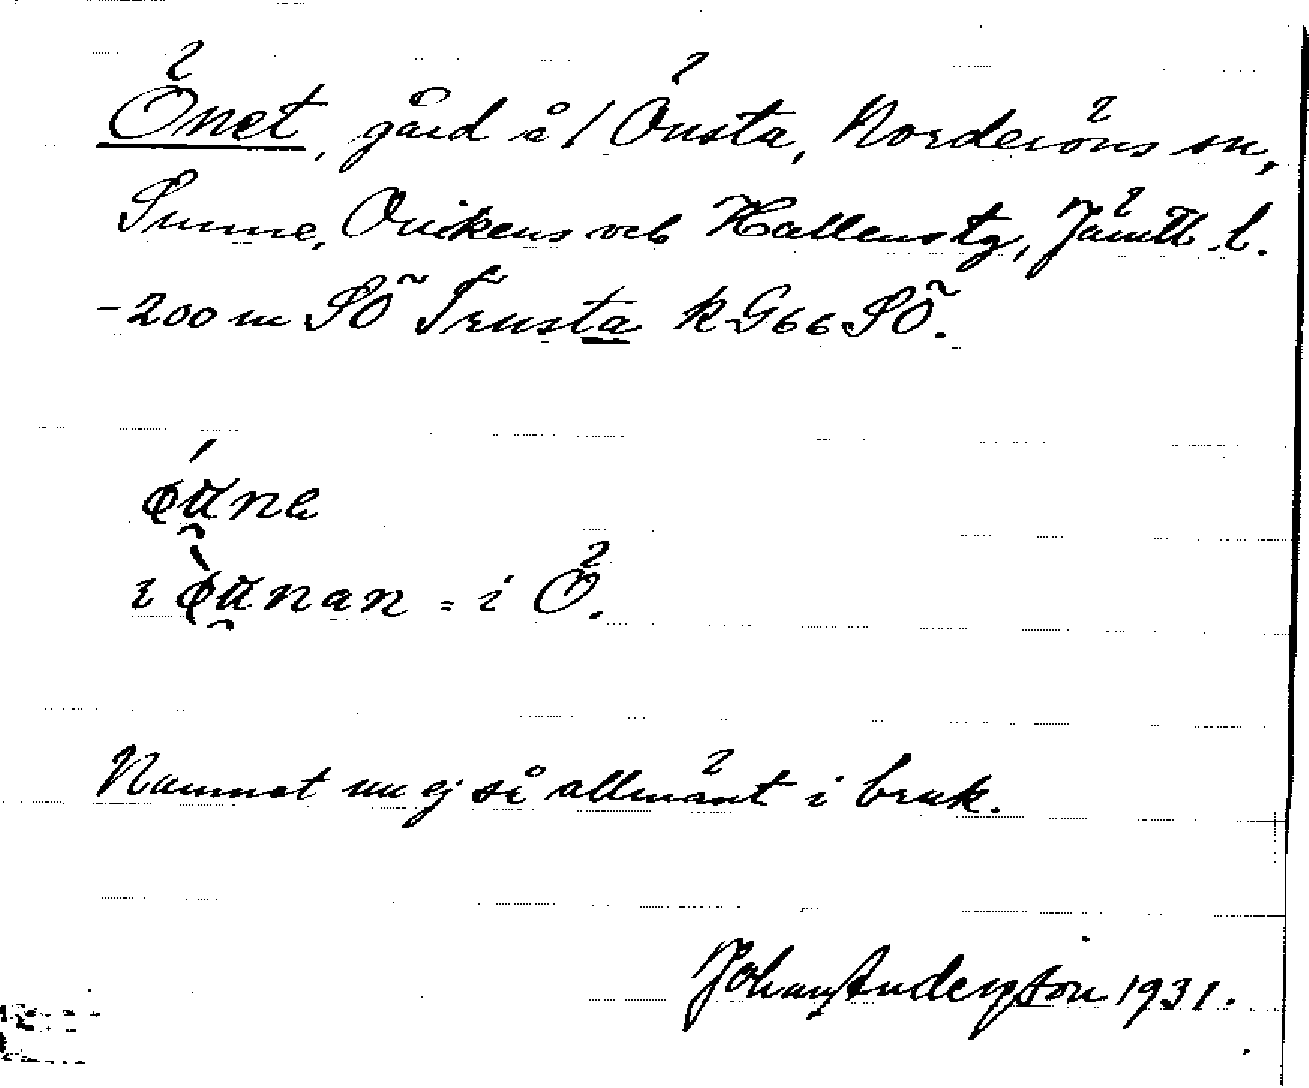 Önet, gård å 1 Önsta, Norderöns sn,
Sunne, Ovikens och Hallens tg, Jämtl. l.
-200 m SÖ Trusta k G66 SÖ.
i Ö.
Namnet nu ej så allmänt i bruk.
Johan Anderzson 1931.